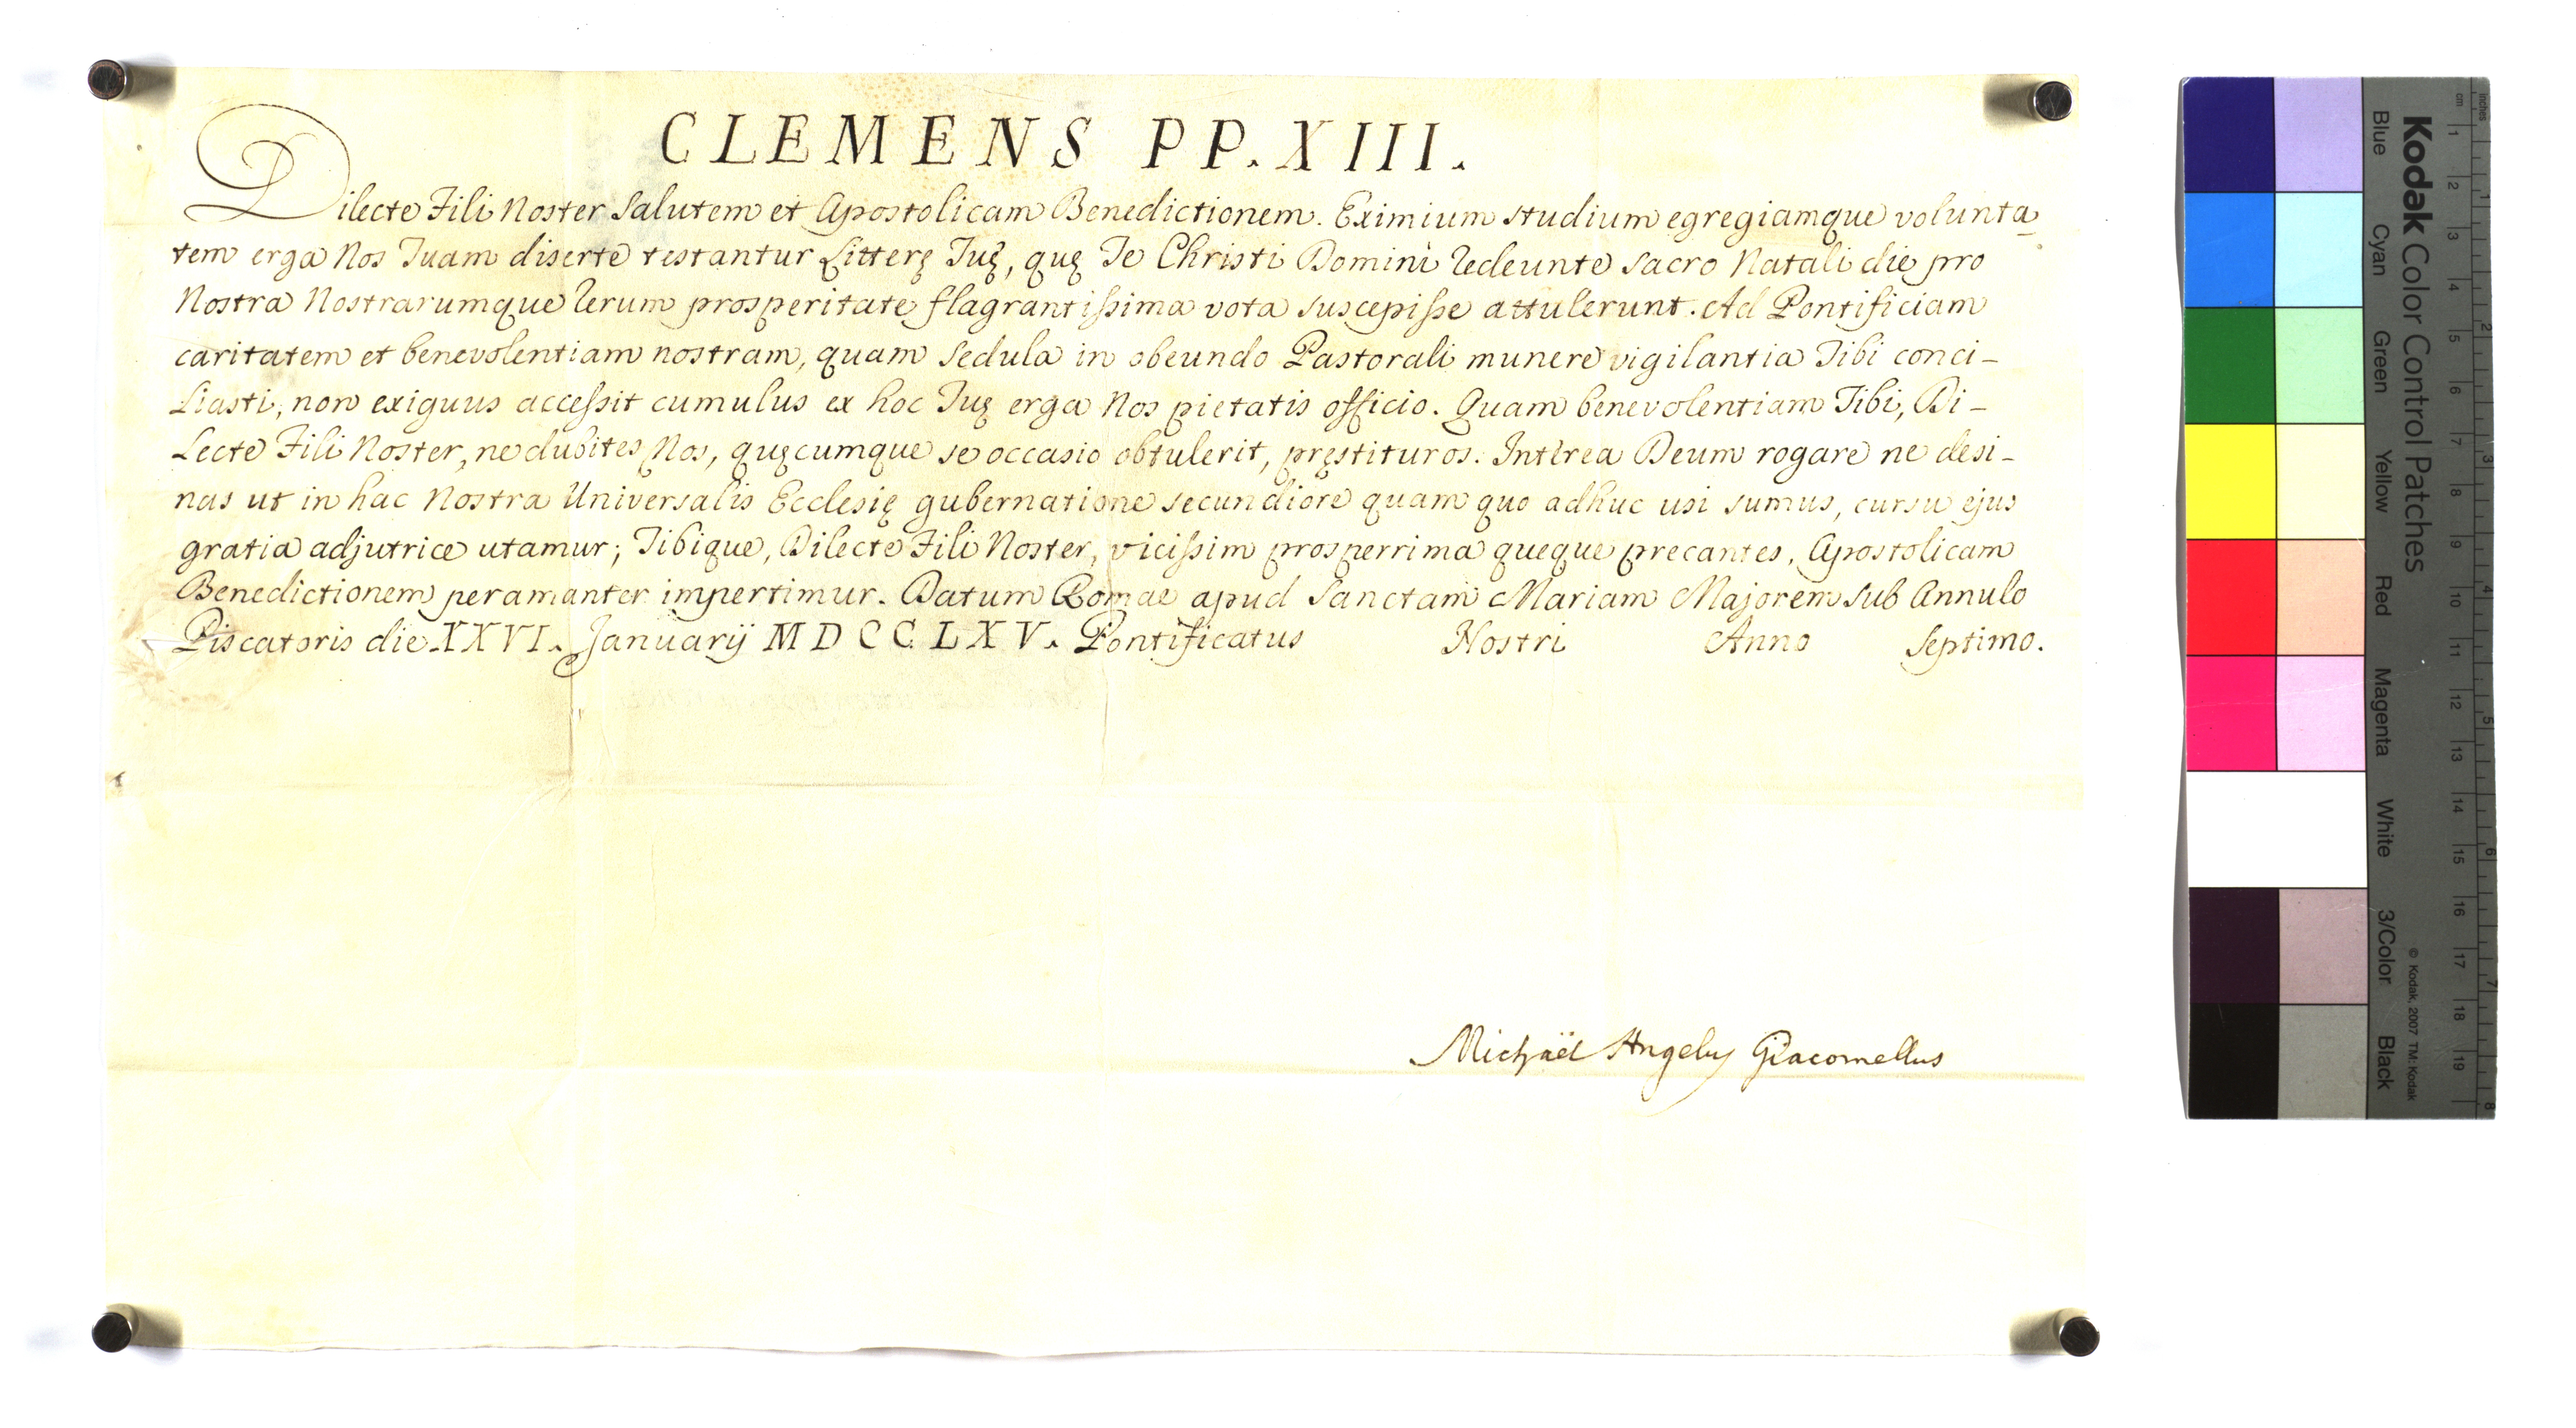 CLEMENS PP. XIII.
Dilecte Fili Noster Salutem et Apostolicam Benedictionem. Eximium studium egregiamque volunta
tem erga Nos Tuam diserte testantur Litterę Tuę, quę Te Christi Domini redeunte sacro Natali die pro
Nostra Nostrarumque rerum prosperitate flagrantissima vota suscepisse attulerunt. Ad Pontificiam
caritatem et benevolentiam nostram, quam sedula in obeundo Pastorali munere vigilantia Tibi conci-
liasti, non exiguus accessit cumulus ex hoc Tuę erga Nos pietatis officio. Quam benevolentiam Tibi, Di-
lecte Fili Noster, ne dubites Nos, quęcumque se occasio obtulerit, pręstituros. Interea Deum rogare ne desi-
nas ut in hac Nostra Universalis Ecclesię gubernatione secundiore quam quo adhuc usi sumus, cursu ejus
gratia adjutrice utamur; Tibique, Dilecte Fili Noster, vicissim prosperrima queque precantes, Apostolicam
Benedictionem peramanter impertimur. Datum Romae apud Sanctam Mariam Majorem sub Annulo
Piscatoris die XXVI. Januarij MDCCLXV. Pontificatus Nostri Anno Septimo.
Michaël Angelus Giacomellus
Kodak Color Control Patches
Blue Cyan Green Yellow Red Magenta White 3/Color Black
© Kodak, 2007 TM: Kodak
cm 1 2 3 4 5 6 7 8 9 10 11 12 13 14 15 16 17 18 19
inches 1 2 3 4 5 6 7 8